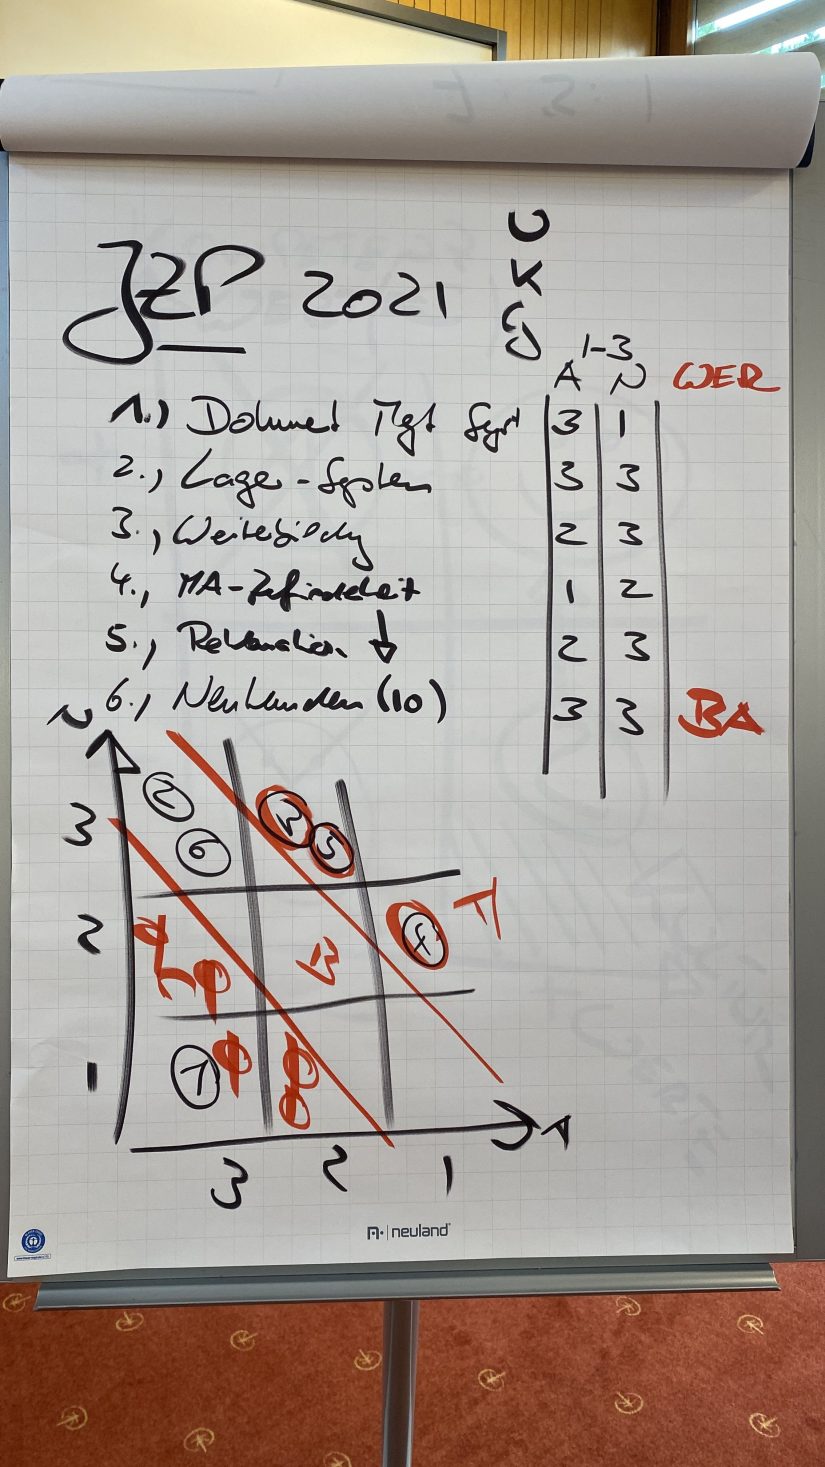 U
K
JZP 2021
1-3
A N WER
1.) Dokument Mgt Syst 3 1
2., Lager-System 3 3
3., Weiterbildung 2 3
4., MA-Zufriedenheit 1 2
5., Reklamation ↓ 2 3
6., Neukunden (10) 3 3 BA
N
3 2 6 3 5
2 B 4 A
1 1
A
3 2 1
neuland